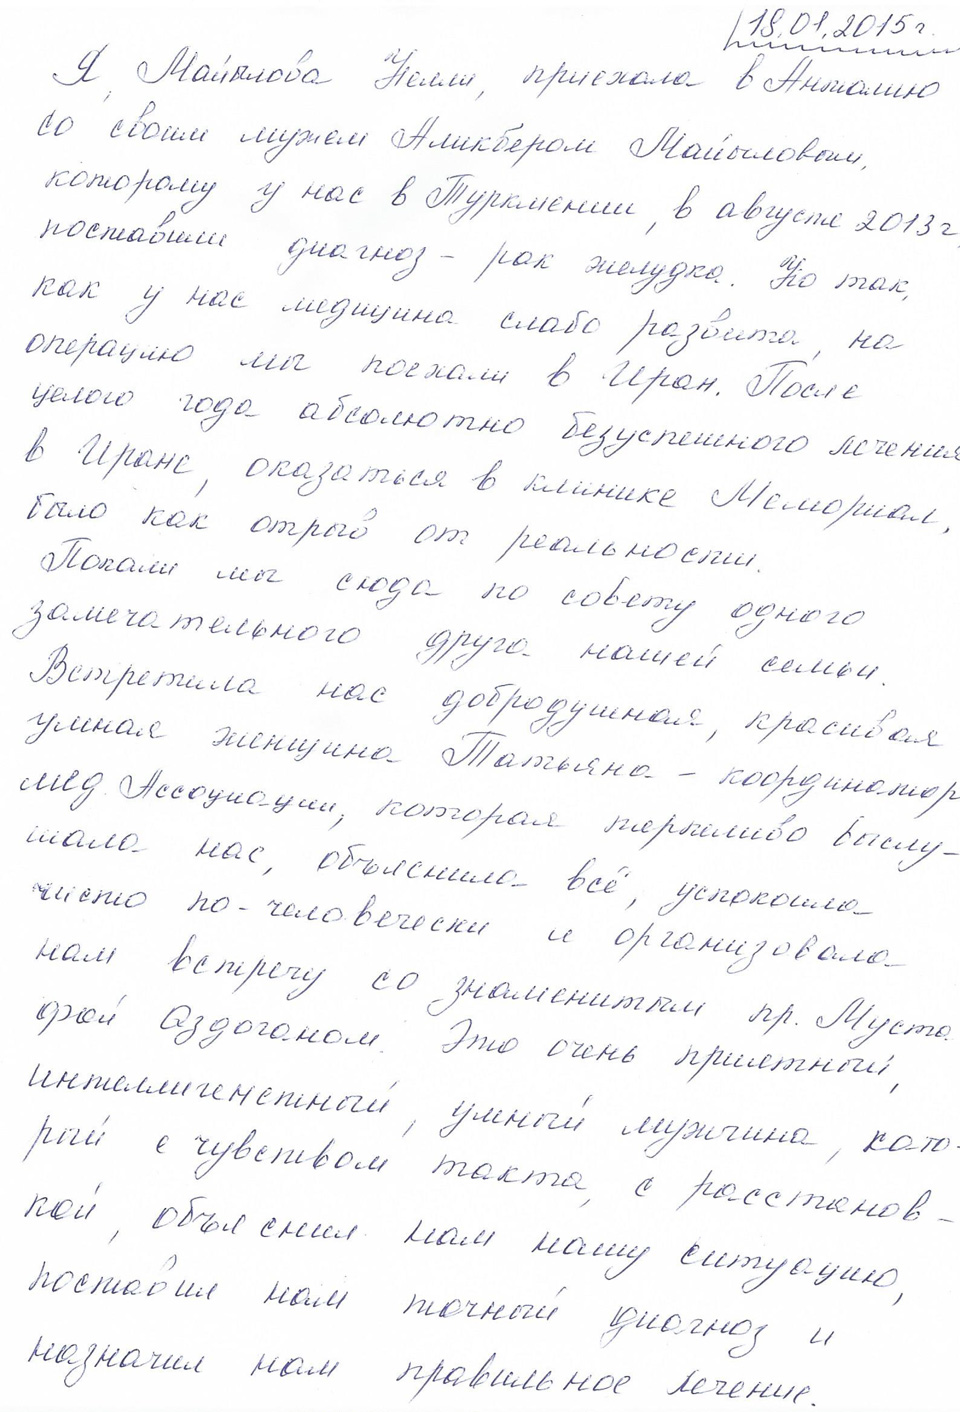 18.01.2015г.
Я, Майылова Нелли, приехала в Анталию
со своим мужем Аликбером Майыловым,
которому у нас в Туркмении, в августе 2013г,
поставили диагноз - рак желудка. Но так,
как у нас медицина слабо развита, на
операцию мы поехали в Иран. После
целого года абсолютно безуспешного лечения
в Иране, оказаться в клинике Мемориал,
было как отрыв от реальности.
Попали мы сюда по совету одного
замечательного друга нашей семьи.
Встретила нас добродушная, красивая
умная женщина Татьяна - координатор
мед. Ассоциации, которая терпеливо выслу-
шала нас, объяснила всё, успокоила
чисто по-человечески и организовала
нам встречу со знаменитым пр. Муста
фой Оздоганом. Это очень приятный,
интеллигентный, умный мужчина, кото-
рый с чувством такта, с расстанов-
кой, объяснил нам нашу ситуацию,
поставил нам точный диагноз и
назначил нам правильное лечение.